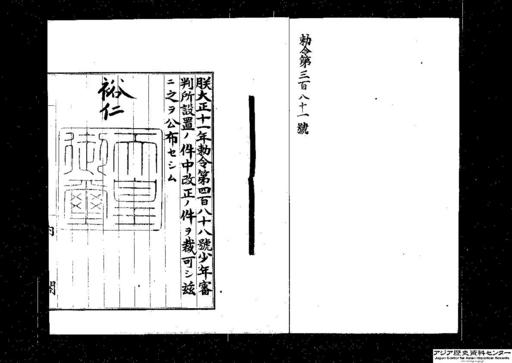 勅令第三百八十一號
朕大正十一年勅令第四百八十八號少年審
判所設置ノ件中改正ノ件ヲ裁可シ茲
ニ之ヲ公布セシム
裕仁
天皇
御璽
内閣
アジア歴史資料センター
Japan Center for Asian Historical Records